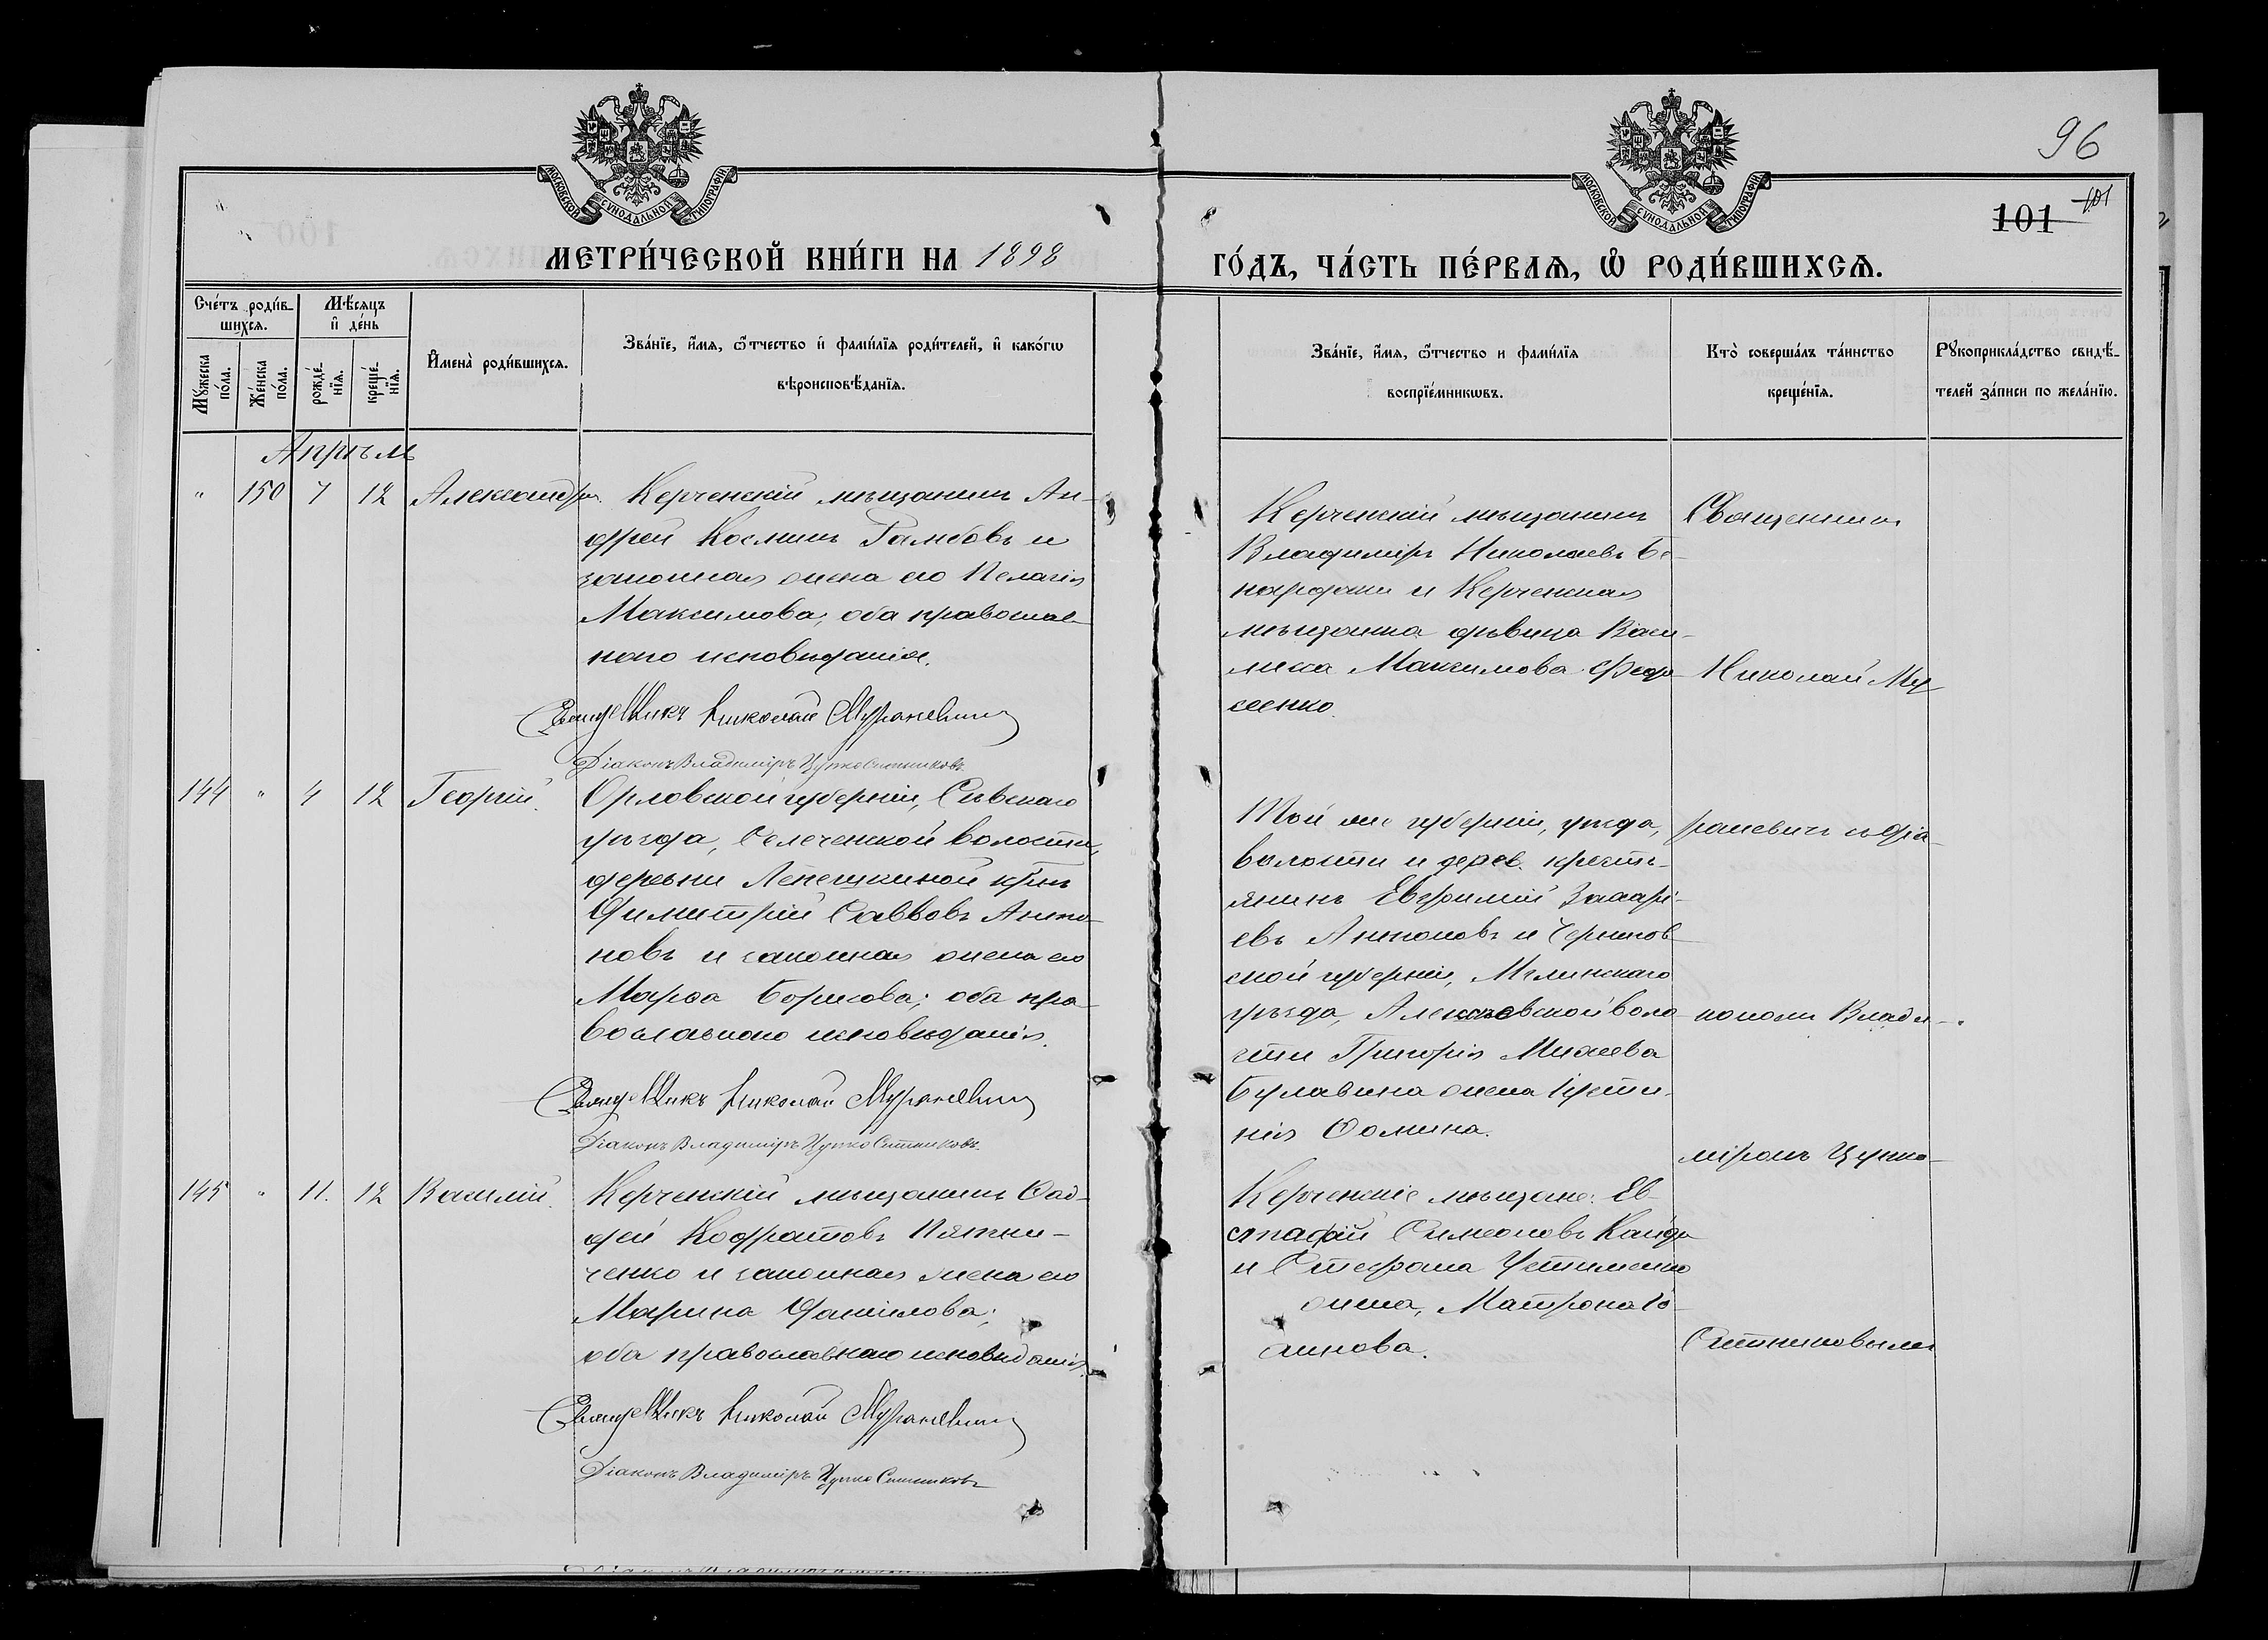 96
101
101
МОСКОВСКОЙ СѴНОДАЛЬНОЙ ТИПОГРАФІИ
МОСКОВСКОЙ СѴНОДАЛЬНОЙ ТИПОГРАФІИ
МЕТРИ́ЧЕСКОЙ КНИ́ГИ НА 1898
ГО́ДЪ, ЧА́СТЬ ПЕ́РВАѦ, Ѡ҆ РОДИ́ВШИХСѦ.
Сче́тъ роди́в-
шихсѧ.
Мѣ́сѧцъ
и҆ де́нь
Мꙋ́жеска
по́ла.
Же́нска
по́ла.
рожде́-
нїѧ.
креще́-
нїѧ.
И҆мена̀ роди́вшихсѧ.
Зва́нїе, и҆́мѧ, ѻ҆́тчество и҆ фамі́лїѧ роди́телей, и҆ како́гѡ
вѣроисповѣ́данїѧ.
Зва́нїе, и҆́мѧ, ѻ҆́тчество и фамі́лїѧ
воспрїе́мникѡвъ.
Кто̀ соверша́лъ та́инство
креще́нїѧ.
Рꙋкоприкла́дство свидѣ́-
телей за́писи по жела́нїю.
Апрѣль
" 150 7 12 Александра. Керченскій мѣщанинъ Ан-
дрей Косминъ Гамбовъ и
законная жена его Пелагія
Максимова, оба православ-
наго исповѣданія.
Священникъ Николай Мураневичъ
Діаконъ Владиміръ Цупко Ситниковъ
Керченскій мѣщанинъ
Владиміръ Николаевъ
и Керченская
мѣщанка дѣвица Васи-
лисса Максимова Федо-
сеенко.
Священникъ
Николай Му-
144 " 4 12 Георгій. Орловской губерніи, Сѣвскаго
уѣзда, Селеченской волости,
деревни Лепешкиной кр-нъ
Димитрій Саввовъ Анто-
новъ и законная жена его
Марѳа Борисова; оба пра-
вославнаго исповѣданія.
Священникъ Николай Мураневичъ
Діаконъ Владиміръ Цупко Ситниковъ.
Той же губерніи, уѣзда,
волости и дерев. кресть-
янинъ Евфимій Захарі-
евъ Антоновъ и Чернигов-
ской губерніи, Мглинскаго
уѣзда, Алексѣевской воло-
сти Григорія Михеева
Булавина жена Іусти-
нія Ѳомина.
раневичъ и діа-
кономъ Влади-
міромъ Цупко-
145 " 11. 12 Василій. Керченскій мѣщанинъ Ѳад-
дей Кодратовъ Пятни-
ченко и законная жена его
Марина Даніилова;
оба православнаго исповѣданія.
Священникъ Николай Мураневичъ
Діаконъ Владиміръ Цупко Ситниковъ
Керченскіе мѣщане: Ев-
стафій Симеоновъ Кайда
и Стефана Устименко
жена, Матрона Іо-
аннова.
Ситниковымъ